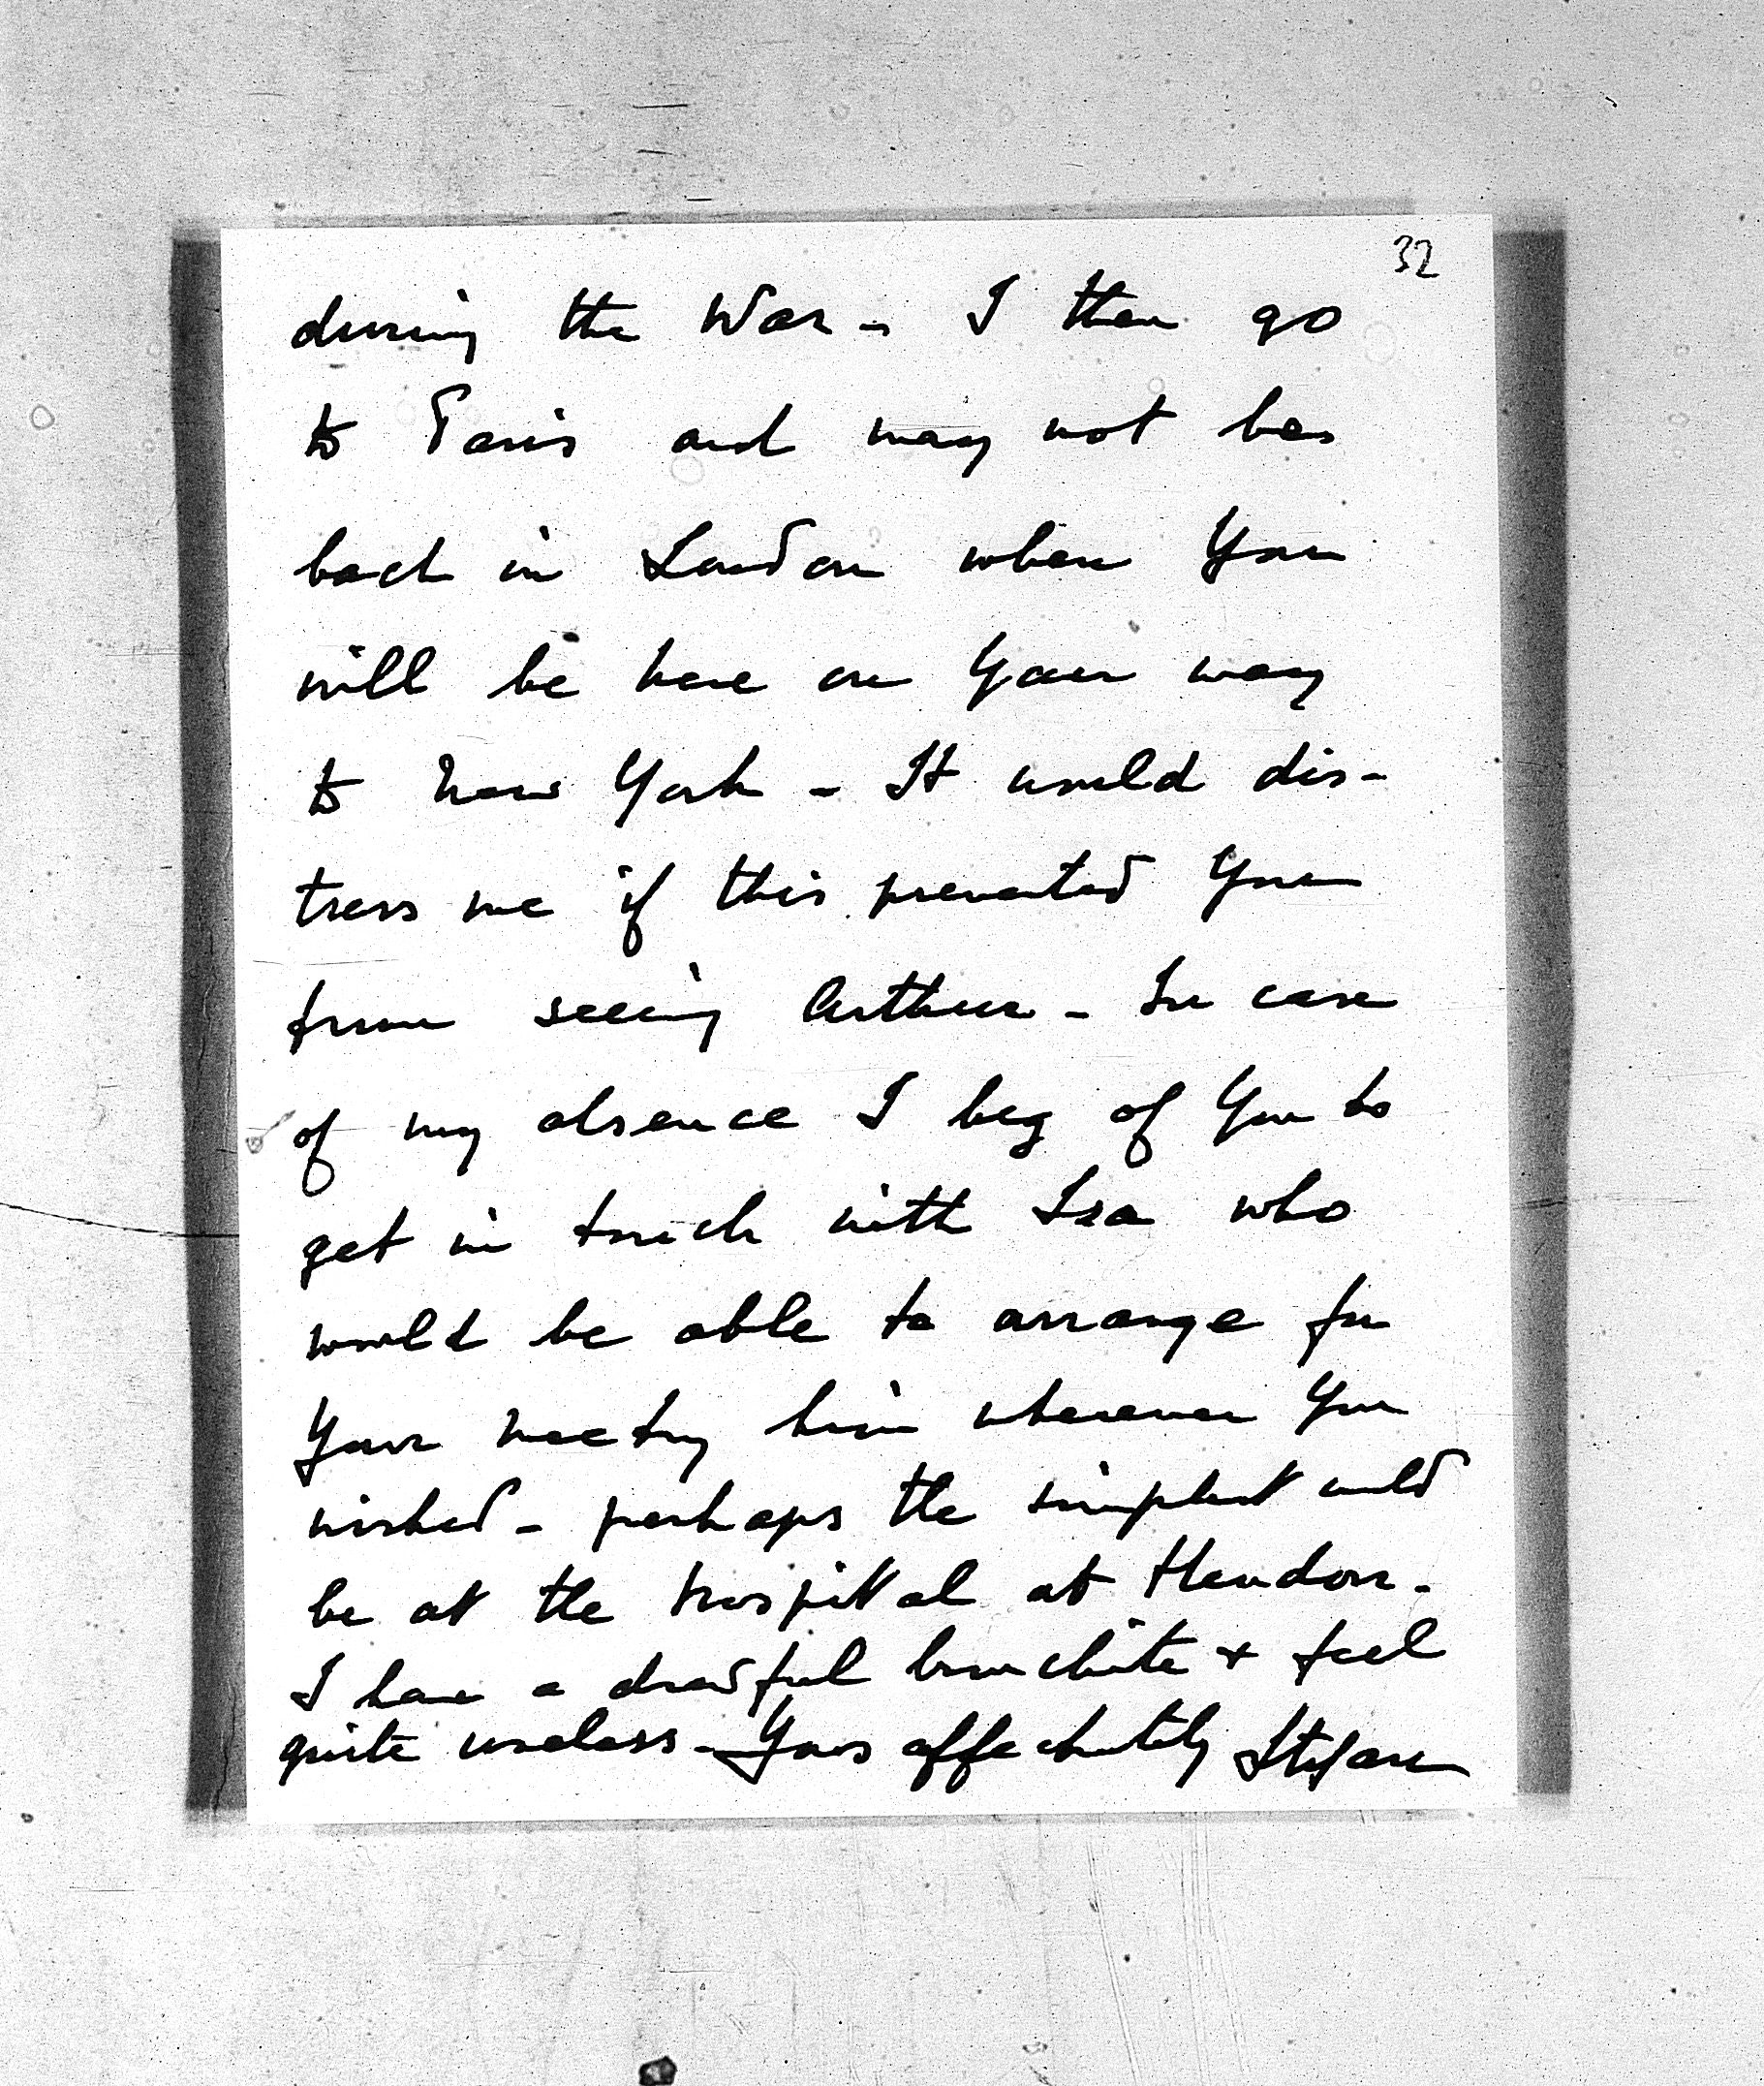 32
during the War - I then go
to Paris and may not be
back in London when You
will be here on Your way
to New York - It would dis-
tress me if this prevented You
from seeing Arthur - In case
of my absence I beg of You to
get in touch with Isa who
would be able to arrange for
Your meeting him wherever You
wished - perhaps the simplest could
be at the hospital at Hendon -
I have a dreadful bronchite + feel
quite useless - Yours affectionately Stefan